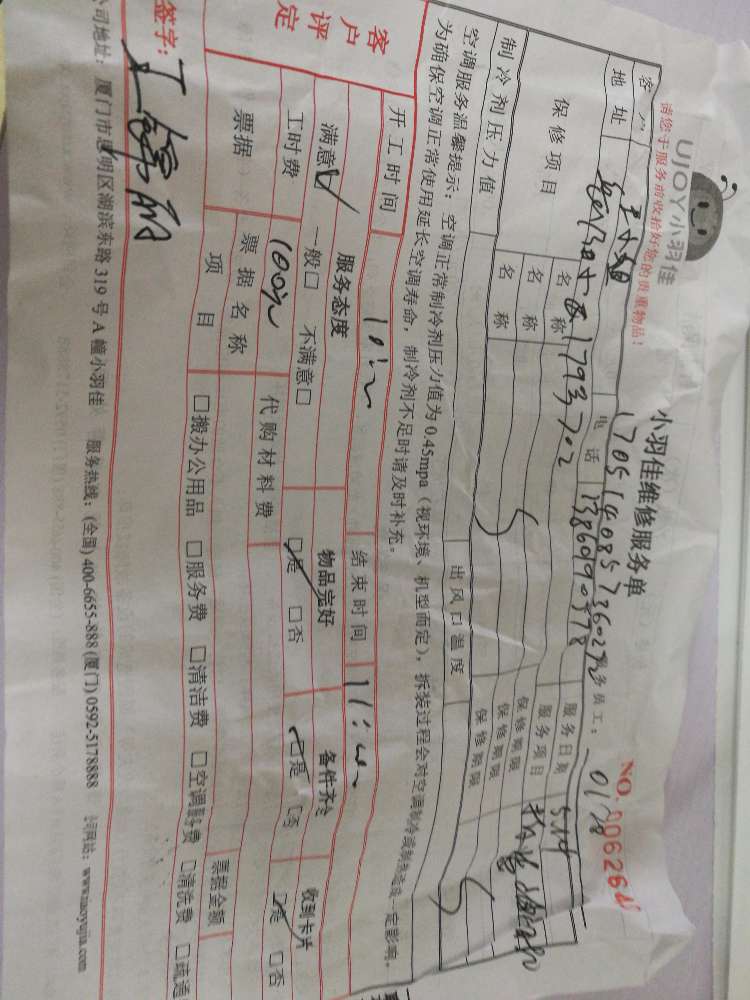 UJOY小羽佳
小羽佳维修服务单
NO. 0062648
请您于服务前收拾好您的贵重物品！
170514085736029
务员工：
0118
客户
王小姐
电话
13860190578
服务日期
5.14
地址
1793702
服务项目
保修项目
名称
保修期限
名称
保修期限
名称
保修期限
制冷剂压力值
出风口温度
空调服务温馨提示：空调正常制冷剂压力值为0.45mpa（视环境、机型而定），拆装过程会对空调制冷或制热造成一定影响。
为确保空调正常使用延长空调寿命，制冷剂不足时请及时补充。
开工时间
结束时间
客户评定
服务态度
物品完好
备件齐全
收到卡片
满意☑ 一般□ 不满意□
☑是 □否
☑是 □否
☑是 □否
工时费
100元
代购材料费
票据
票据名称
票据金额
项目
□搬办公用品 □服务费 □清洁费 □空调服务费 □清洗费 □疏通
签字：
公司地址：厦门市思明区湖滨东路319号A幢小羽佳 服务热线：(全国) 400-6655-888 (厦门) 0592-5178888 公司网站：www.xiaoyujia.com